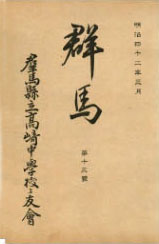 明治四十二年三月
群馬
第十三號
群馬縣立高崎中學校々友會